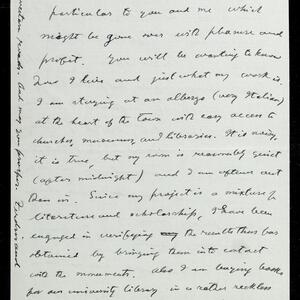 particular to you and me which
might be gone over with pleasure and
profit. You will be wanting to know
how I live and just what my work is.
I am staying at an albergo (very Italian)
at the heart of the town with easy access to
churches, museums, and libraries. It is noisy,
it is true, but my room is reasonably quiet
(after midnight) and I am often out
than in. Since my project is a mixture of
literature and scholarship, I have been
engaged in verifying the results thus far
obtained by bringing them into contact
with the monuments. Also I am buying books
for our university library in a rather reckless
western roads. And may you prosper. Ferdinand